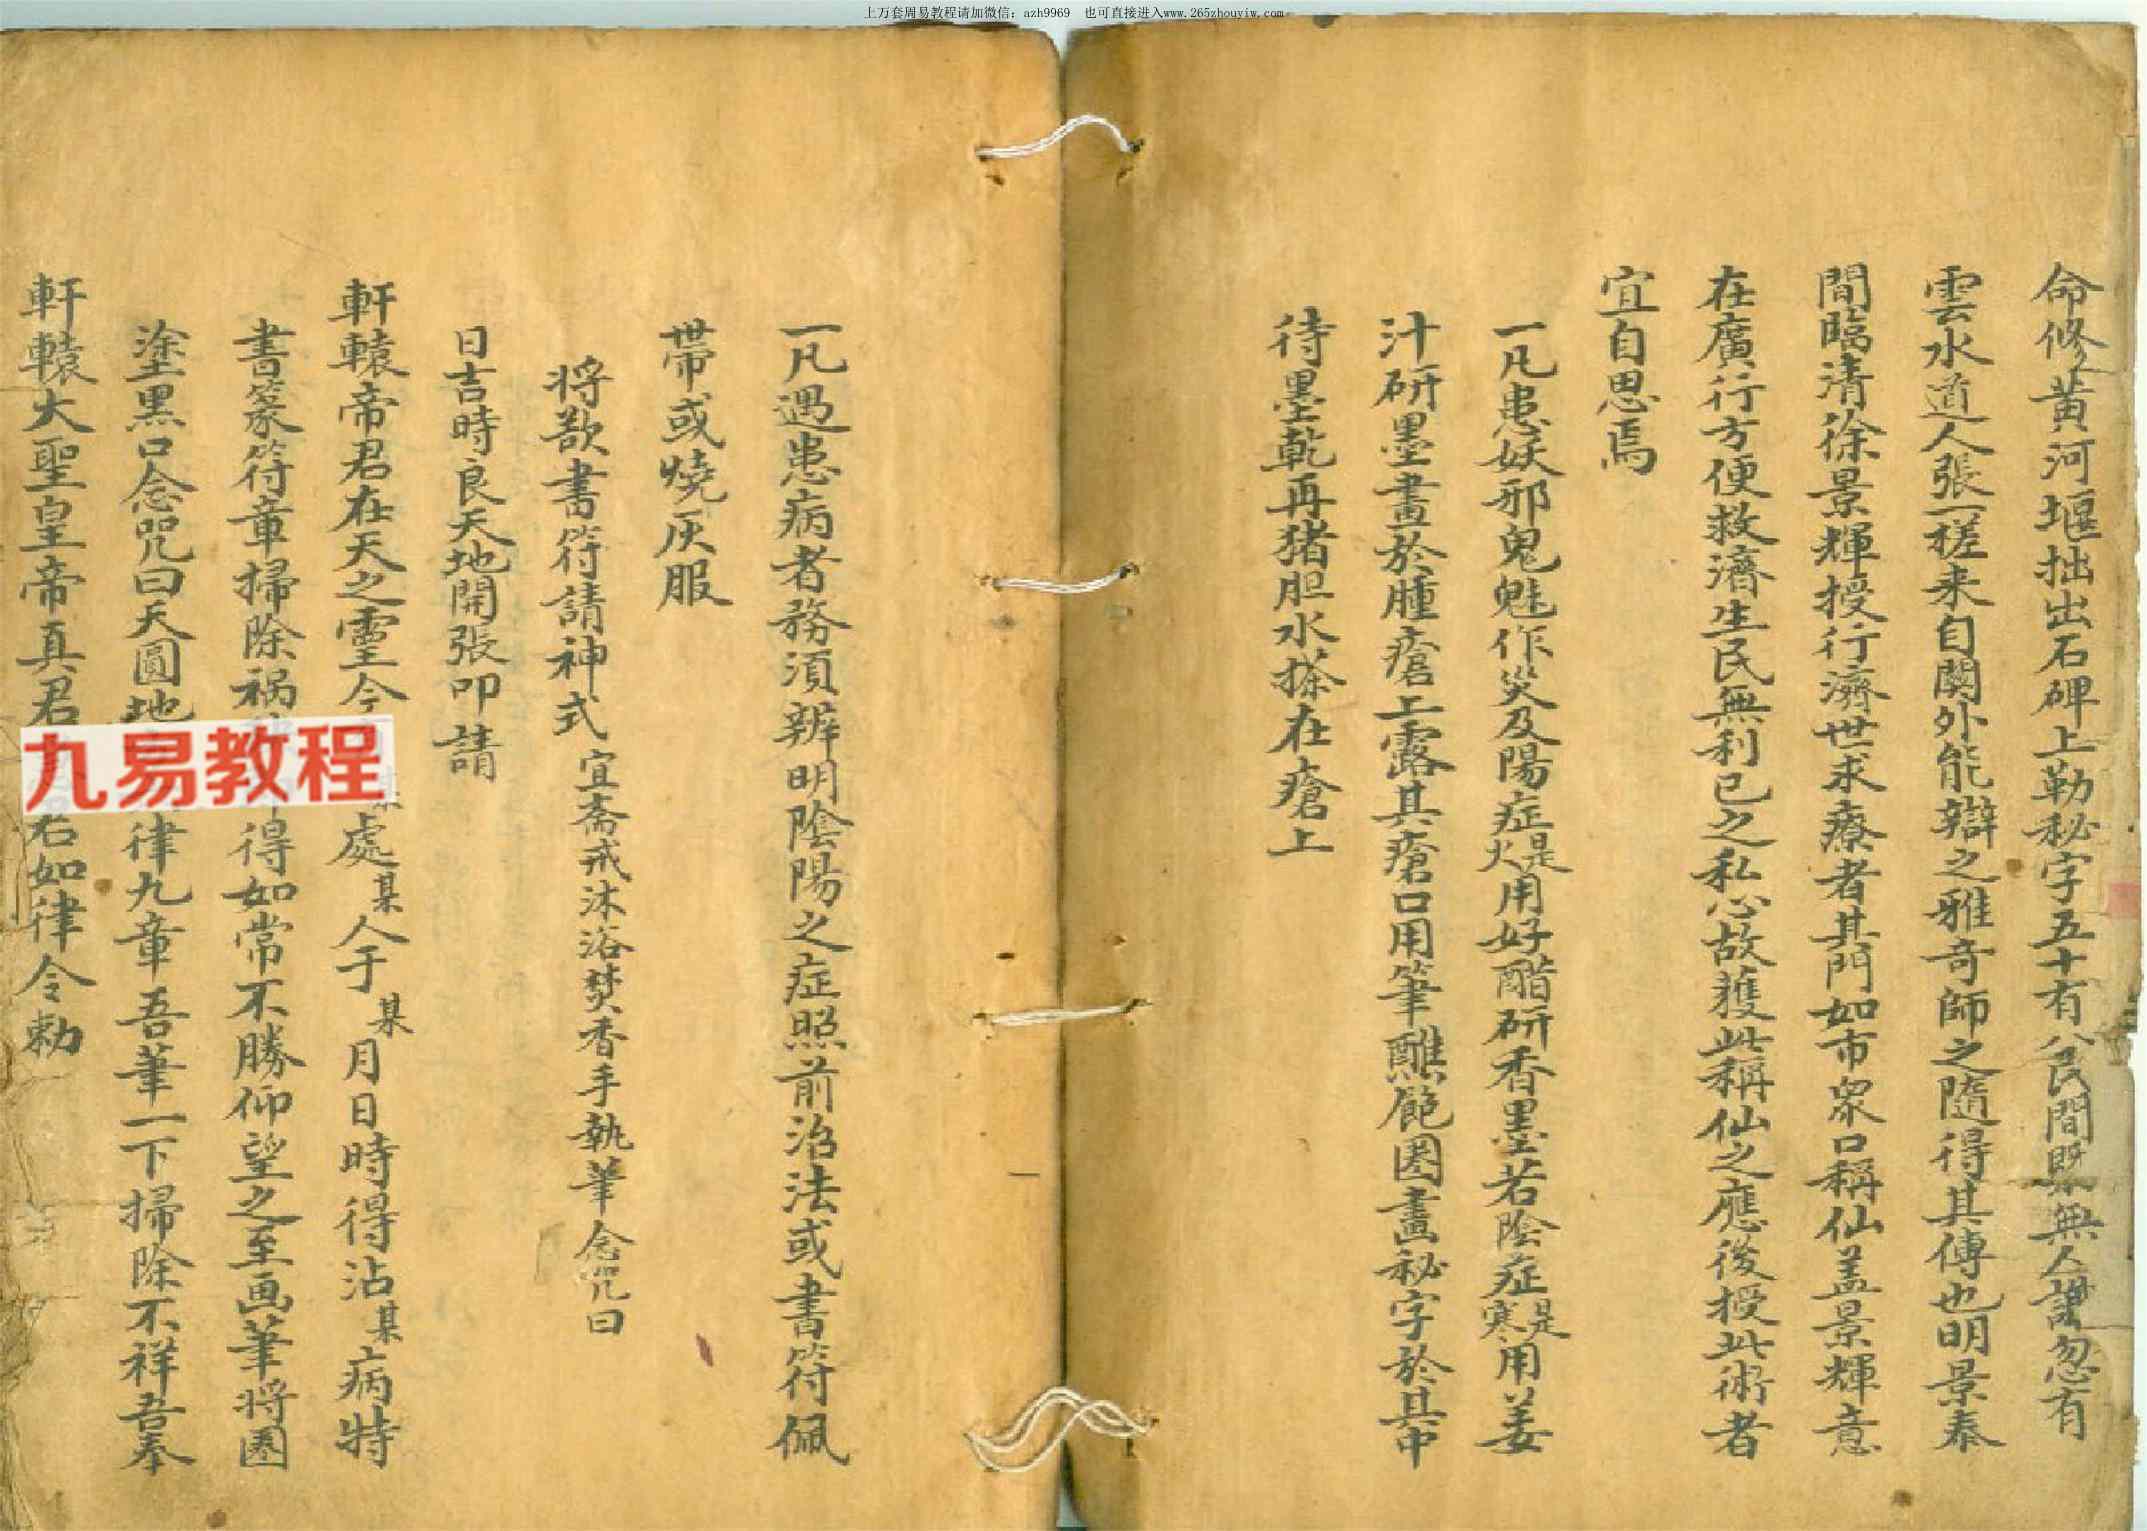 上万套周易教程请加微信：azh9969　也可直接进入www.265zhouyiw.com
命修黄河堰拙出石碑上勒秘字五十有八民間既無人識忽有
雲水道人張一槎来自關外能辯之雅奇師之隨得其傳也明景泰
間臨清徐景輝授行濟世求療者其門如市眾口稱仙盖景輝意
在廣行方便救濟生民無利已之私心故獲此稱仙之應後授此術者
宜自思焉
一凡患妖邪鬼魅作災及陽症是火用好醋研香墨若陰症是寒用姜
汁研墨畫於腫瘡上露其瘡口用筆醮飽圏畫秘字於其中
待墨乾再猪胆水搽在瘡上
一凡遇患病者務須辨明陰陽之症照前治法或書符佩
帶或燒灰服
将欲書符請神式 宜齋戒沐浴焚香手執筆念咒曰
日吉時良天地開張叩請
軒轅帝君在天之靈今 處某人于某月日時得沾某病特
書篆符章掃除禍 得如常不勝仰望之至画筆将圏
塗黑口念咒曰天圓地 律九章吾筆一下掃除不祥吾奉
軒轅大聖皇帝真君 君如律令勅
九易教程